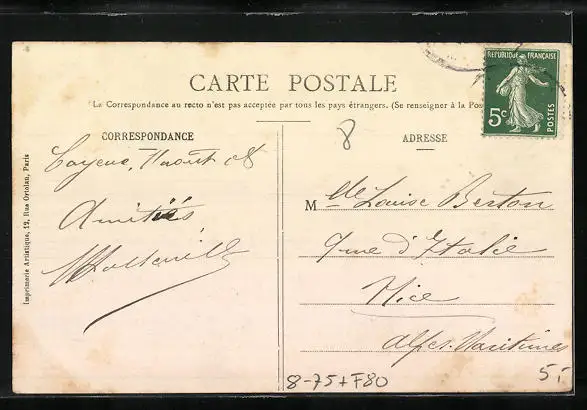 CARTE POSTALE
La Correspondance au recto n'est pas acceptée par tous les pays étrangers. (Se renseigner à la Pos
RÉPUBLIQUE FRANÇAISE
5c
POSTES
8
CORRESPONDANCE
ADRESSE
août 08
Amitiés
M lle Louise Berton
rue d'Italie
Nice
Alpes-Maritimes
Imprimerie Artistique, 12, Rue Ortolan, Paris
8-75+F80
5,-